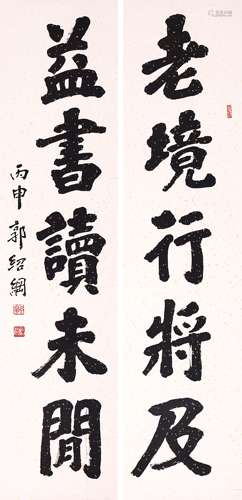 老境行將及
益書讀未閒
丙申 郭紹綱